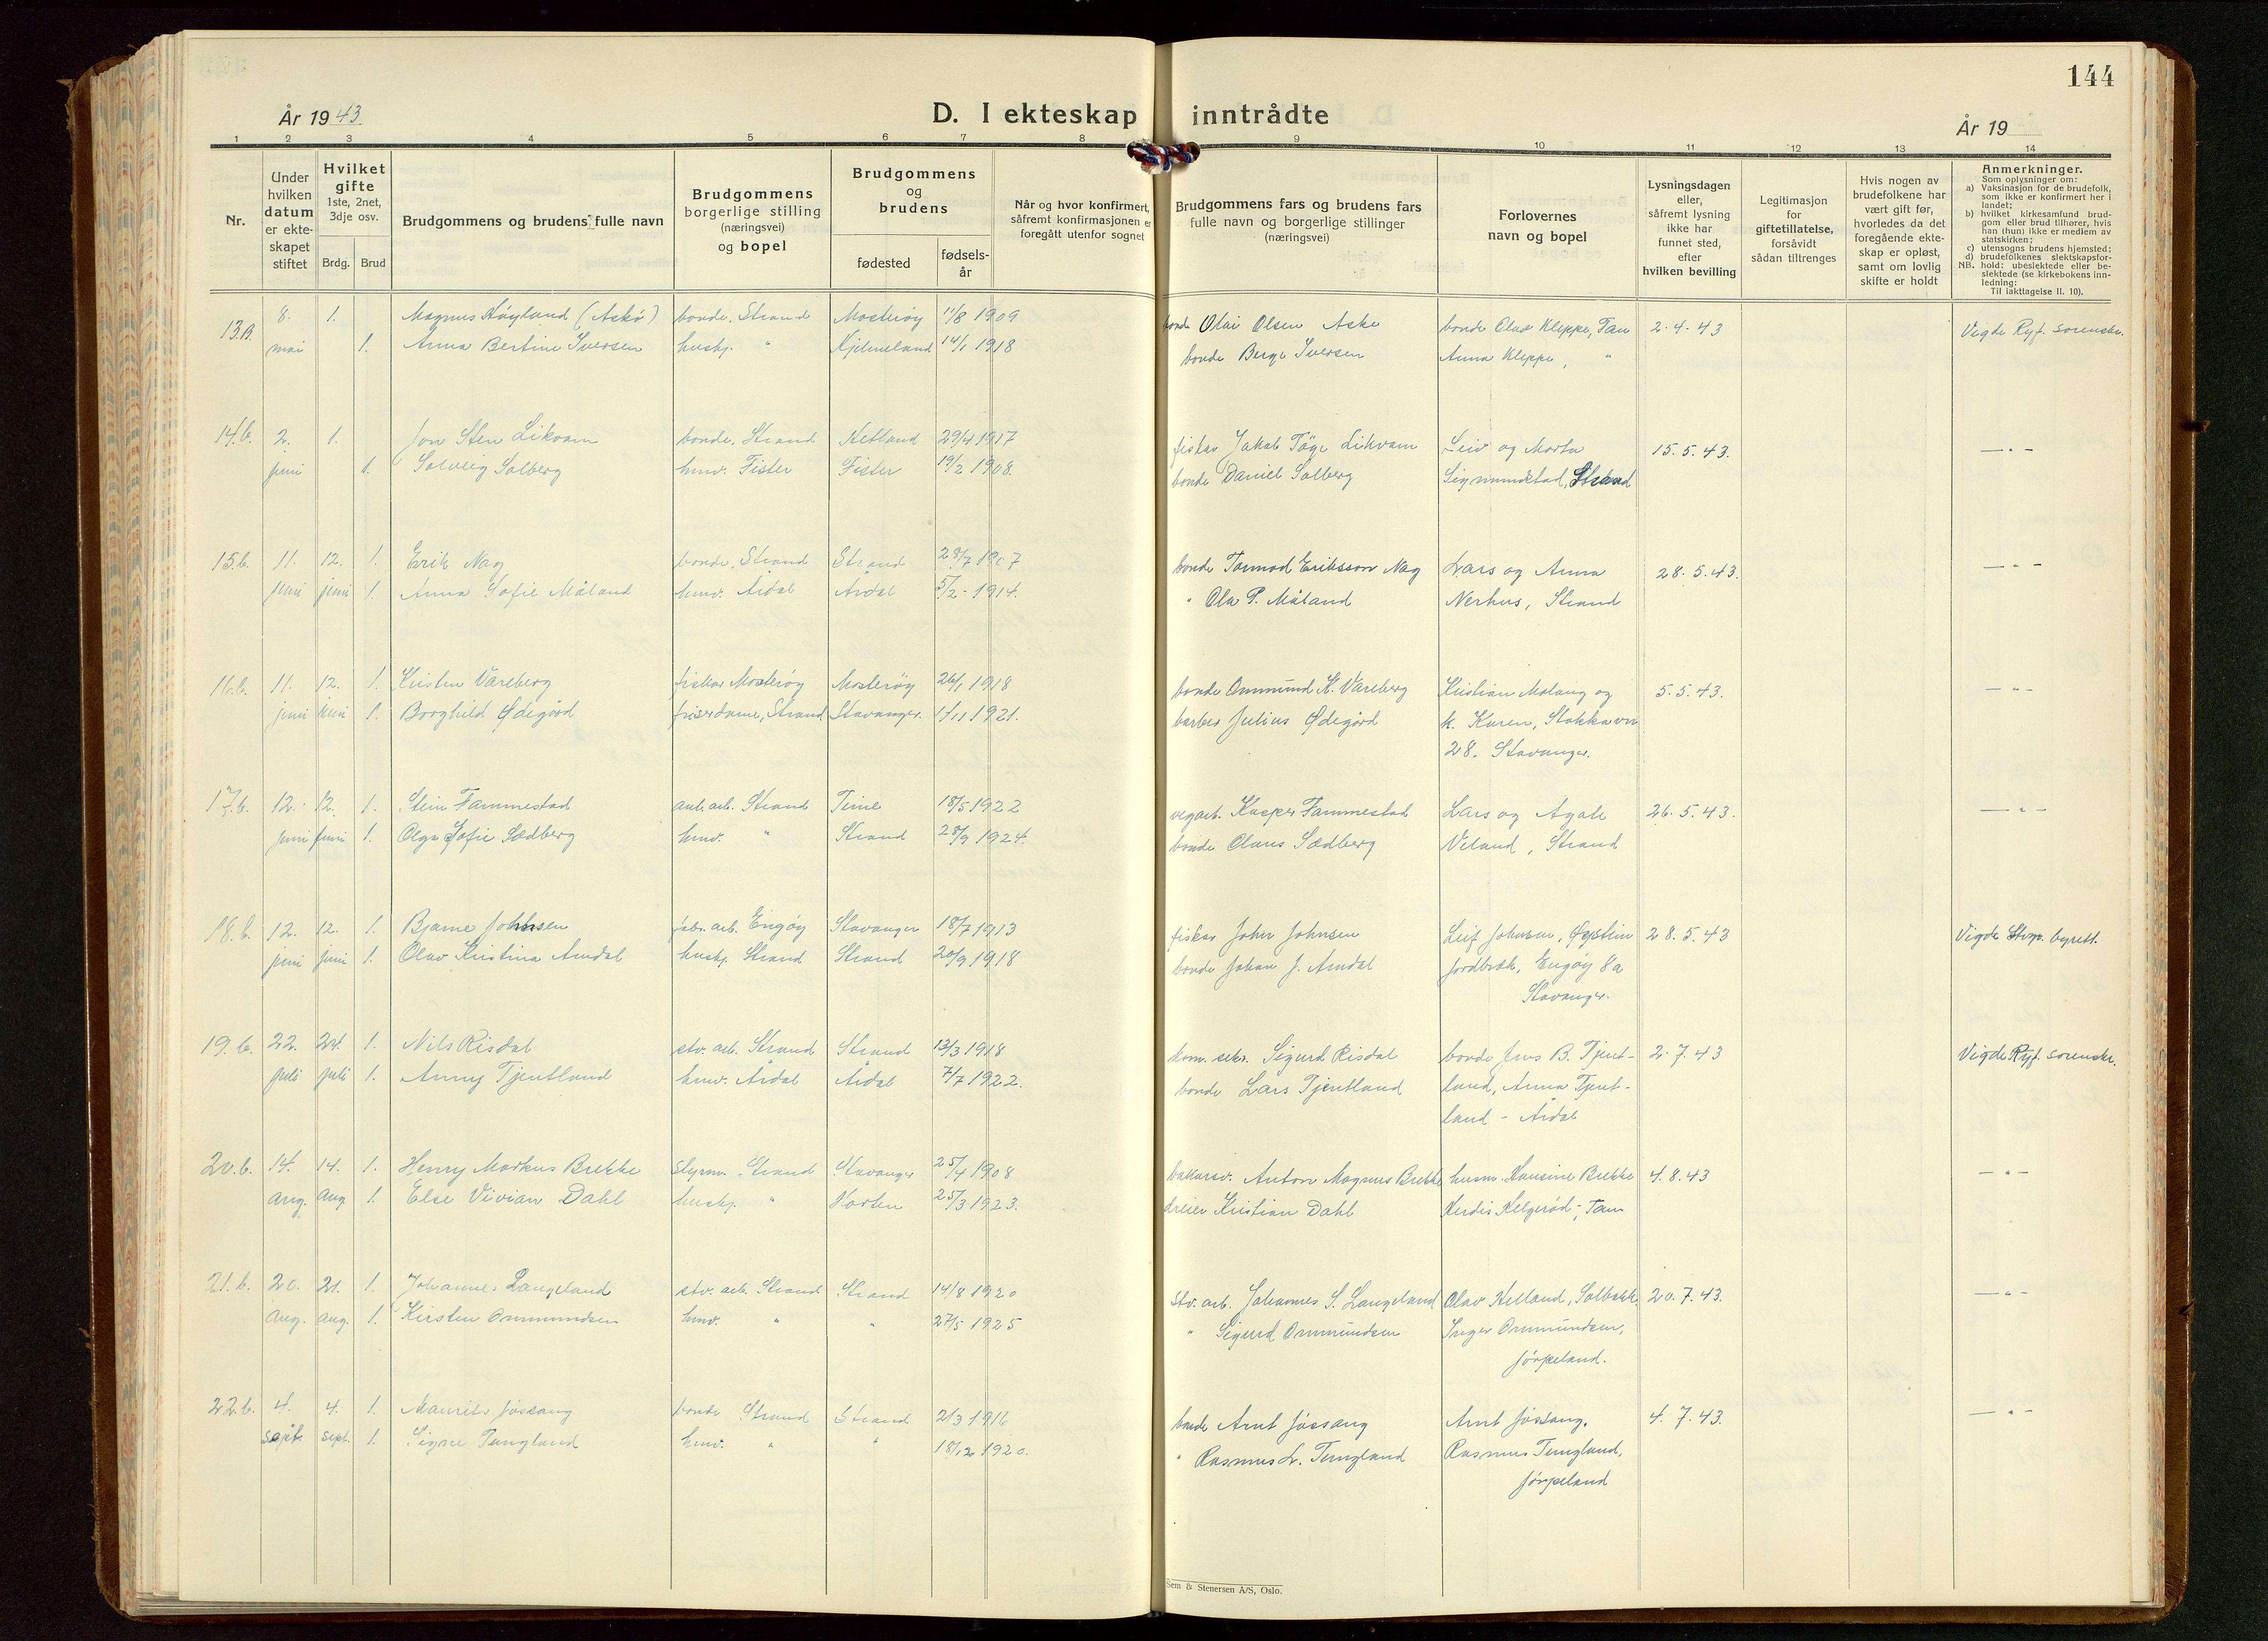 144
År 1943
D. I ekteskap inntrådte
År 19
1 2 3 4 5 6 7 8 9 10 11 12 13 14
Nr.
Under hvilken datum er ekteskapet stiftet
Hvilket gifte 1ste, 2net, 3dje osv.
Brdg. Brud
Brudgommens og brudens fulle navn
Brudgommens borgerlige stilling (næringsvei) og bopel
Brudgommens og brudens
fødested
fødsels-år
Når og hvor konfirmert, såfremt konfirmasjonen er foregått utenfor sognet
Brudgommens fars og brudens fars fulle navn og borgerlige stillinger (næringsvei)
Forlovernes navn og bopel
Lysningsdagen eller, såfremt lysning ikke har funnet sted, efter hvilken bevilling
Legitimasjon for giftetillatelse, forsåvidt sådan tiltrenges
Hvis nogen av brudefolkene har vært gift før, hvorledes da det foregående ekteskap er opløst, samt om lovlig skifte er holdt
Anmerkninger.
Som oplysninger om:
a) Vaksinasjon for de brudefolk, som ikke er konfirmert her i landet;
b) hvilket kirkesamfund brudgom eller brud tilhører, hvis han (hun) ikke er medlem av statskirken;
c) utensogns brudens hjemsted;
d) brudefolkenes slektskapsforhold: ubeslektede eller beslektede (se kirkebokens innledning:
NB.
Til iakttagelse II. 10).
13.B. 8. 1. Magnus Høyland (Askø) bonde, Strand Mosterøy 11/8 1909 bonde Olai Olsen Aske bonde Olav Kleppe, Tau 2.4.43 Vigde Ryf. sorenskr.
mai 1. Anna Bertine Iversen hushj. " Hjelmeland 14/1 1918 bonde Berge Iversen Anna Kleppe, "
14.b. 2. 1. Jon Sten Likvam bonde, Strand Hetland 29/4 1917 fisker Jakob Töge Likvam Leiv og Marta 15.5.43. — " —
juni 1. Solveig Solberg hmv. Fister Fister 19/2 1908. bonde Daniel Solberg Sigmundstad, Strand
15.b. 11. 12. 1. Erik Nag bonde, Strand Strand 28/7 1907 bonde Tormod Eriksson Nag Lars og Anna 28.5.43. — " —
juni juni 1. Anna Sofie Måland hmv. Årdal Årdal 5/2 - 1914. " Ola P. Måland Nerhus, Strand
16.b. 11. 12. 1. Kristen Våreberg fisker Mosterøy Mosterøy 26/1 1918 bonde Ommund K. Våreberg Kristian Molaug og 5.5.43. — " —
juni juni 1. Borghild Ødegård friserdame, Strand Stavanger 1/11 1921. barber Julius Ødegård k. Karen, Stokkavn
28. Stavanger.
17.b. 12. 12. 1. Stein Tammestad anl.arb. Strand Time 18/5 1922 vegarb. Kasper Tammestad Lars og Agate 26.5.43. — " —
juni juni 1. Olga Sofie Sædberg hmv. " Strand 28/9 1924. bonde Olaus Sædberg Veland, Strand
18.b. 12. 12. 1. Bjarne Johnsen fabr. arb. Engøy Stavanger 18/7 1913 fisker John Johnsen Leif Johnsen, Øystein 28.5.43 Vigde Stvgr. byrett.
juni juni 1. Olav Kristina Amdal hushj. Strand Strand 20/9 1918 bonde Johan J. Amdal Jordbræk, Engøy 8a
Stavanger.
19.b. 22. 24. 1. Nils Risdal stv. arb. Strand Strand 13/3 1918 kom. sekr. Sigurd Risdal bonde Jens B. Tjent- 2.7.43 Vigde Ryf. sorenskr.
juli juli 1. Anny Tjentland hmv. Årdal Årdal 7/7 1922. bonde Lars Tjentland land, Anna Tjent-
land - Årdal
20.b. 14. 14. 1. Henry Markus Brekke styrm. Strand Stavanger 25/4 1908 bakersv. Anton Magnus Brekke husm. Hansine Brekke 4.8.43 — " —
aug. aug 1. Else Vivian Dahl hushj. " Horten 25/3 1923. dreier Kristian Dahl Herdis Helgerød -, Tau
21.b. 20. 21. 1. Johannes Langeland stv. arb. Strand Strand 14/8 1920 Stv. arb. Johannes S. Langeland Olav Helland, Solbakk 20.7.43. — " —
aug. aug. 1. Kirsten Ommundsen hmv. " " 27/5 1925 " Sigurd Ommundsen Inger Ommundsen,
Jörpeland.
22.b. 4. 4. 1. Maurits Jössang bonde Strand Strand 2/3 1916 bonde Arnt Jössang Arnt Jössang, 4.7.43. — " —
sept. sept. 1. Signe Tungland hmv. " " 18/12 1920. " Rasmus L. Tungland Rasmus Tungland,
Jörpeland
Sem & Stenersen A/S, Oslo.